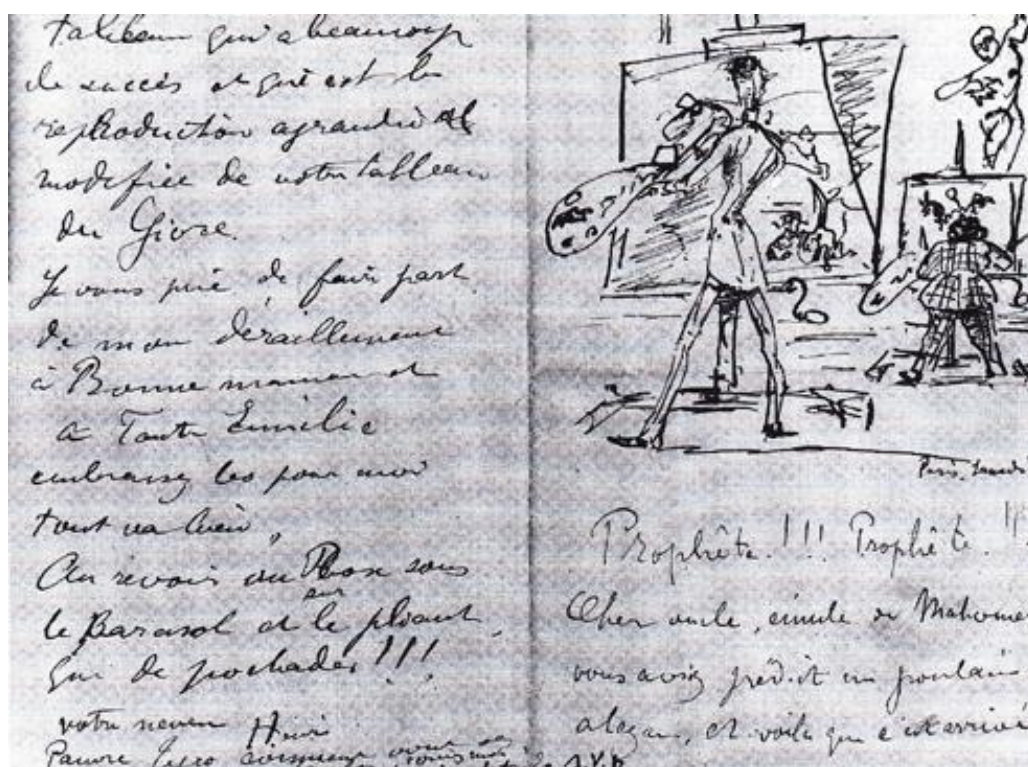 tableau qui a beaucoup
de succès et qui est la
reproduction agrandie et
modifiée de votre tableau
du Givre.
Je vous prie de faire part
de mon déraillement
à Bonne maman et
à Tante Emilie
embrassez les pour moi
tout va bien,
Au revoir au Bosc sous
le Parasol et sur le pliant,
que de pochades!!!
votre neveu Henri
Pauvre
Paris. Samedi
Prophète!!! Prophète.!!
Cher oncle, émule de Mahome
vous aviez prédit un poulain
alezan, et voilà que c'est arrivé
S.V.P.